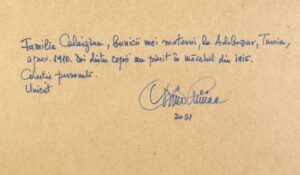 Familia Calaigian, bunicii mei materni, la Adabazar, Turcia,
aprox. 1910. Doi dintre copii au pierit în măcelul din 1915.
Colecție personală.
Unicat
2001